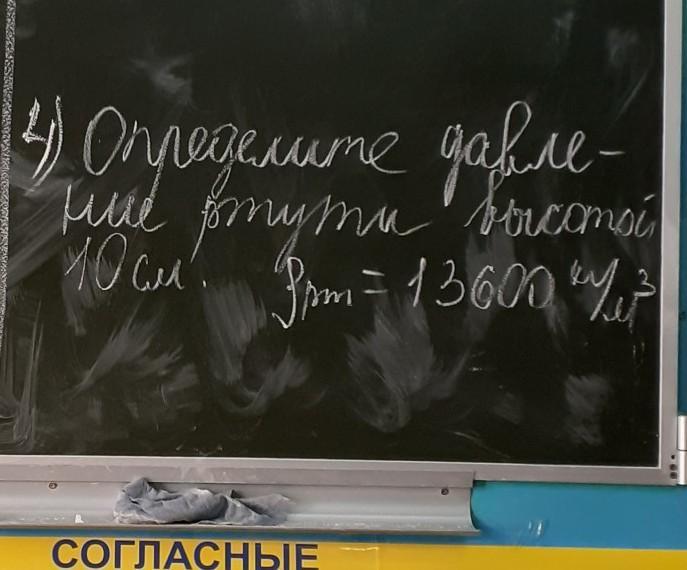 4) Определите давле-
ние ртути высотой
10 см. ρрт = 13600 кг/м³
СОГЛАСНЫЕ